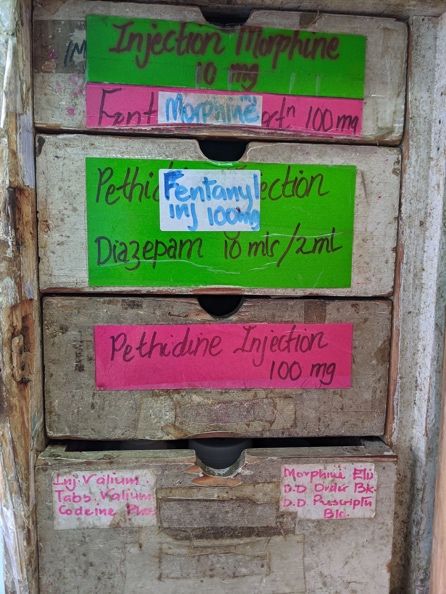 Injection Morphine
10 mg
Fent Morphine ctn 100 mg
Pethi ection
Fentanyl
inj 100mg
Diazepam 10 mls/2ml
Pethidine Injection
100 mg
Inj Valium
Tabs Valium
Codeine Phos
Morphine Eli
D.D Order Bk
D.D. Prescriptn
Bk.